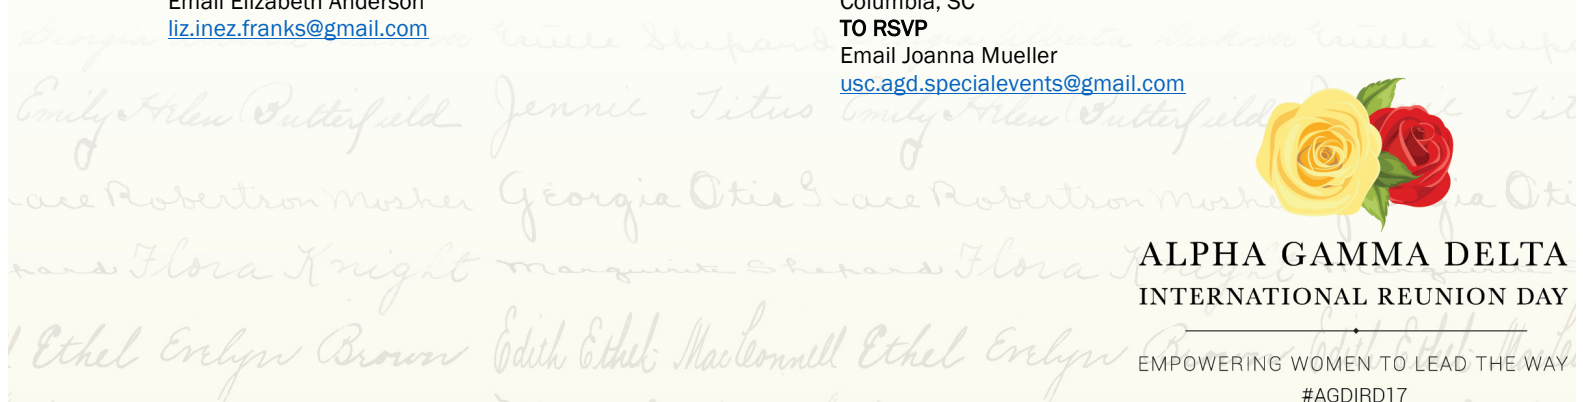 Email Elizabeth Anderson
liz.inez.franks@gmail.com
Columbia, SC
TO RSVP
Email Joanna Mueller
usc.agd.specialevents@gmail.com
Estelle Shepard
Emily Helen Butterfield Jennie Titus Emily Helen Butterfield
ace Robertson Mosher Georgia Otis Grace Robertson Moshe
Flora Knight Marguerite Shepard Flora Knight
Ethel Evelyn Brown Edith Ethel MacConnell Ethel Evelyn Brown
ALPHA GAMMA DELTA
INTERNATIONAL REUNION DAY
EMPOWERING WOMEN TO LEAD THE WAY
#AGDIRD17